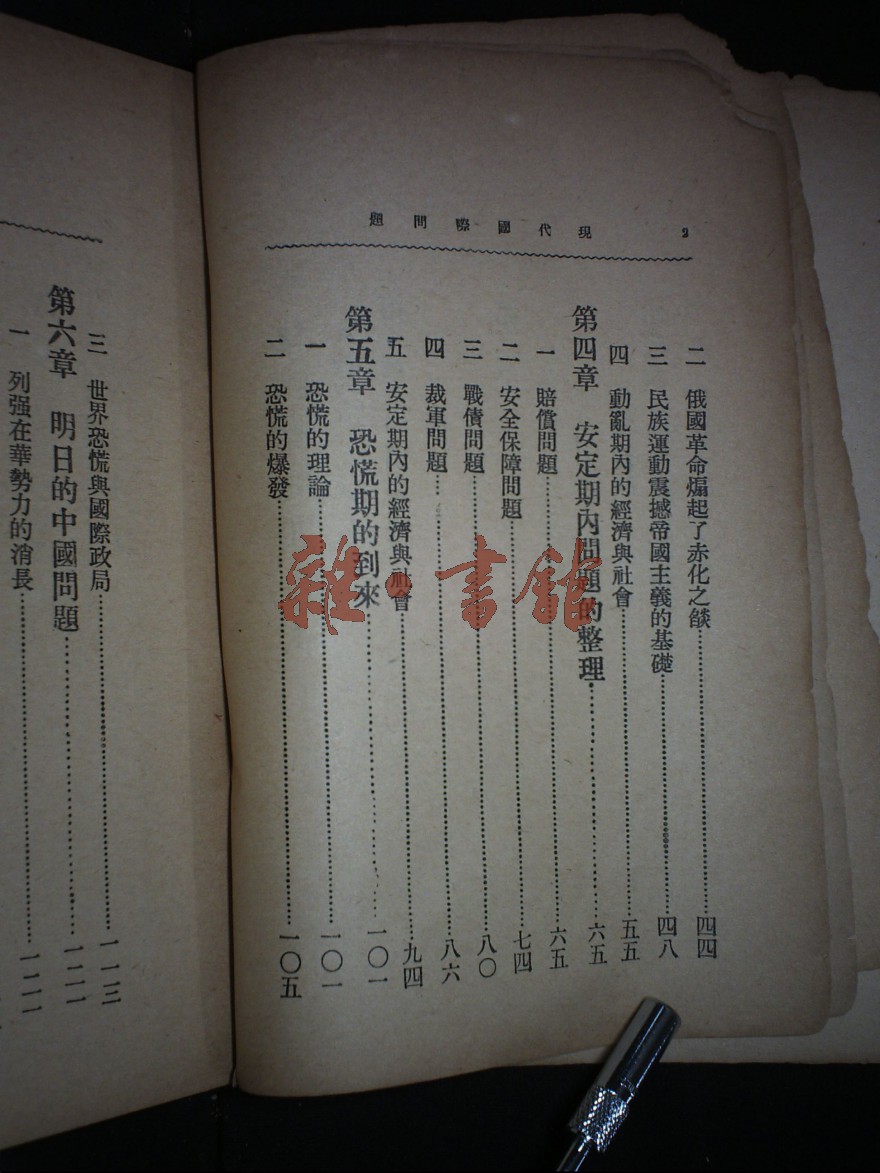 現代國際問題 2
二 俄國革命煽起了赤化之燄 四四
三 民族運動震撼帝國主義的基礎 四八
四 動亂期內的經濟與社會 五五
第四章 安定期內問題的整理 六五
一 賠償問題 六五
二 安全保障問題 七四
三 戰債問題 八〇
四 裁軍問題 八六
五 安定期內的經濟與社會 九四
第五章 恐慌期的到來 一〇一
一 恐慌的理論 一〇一
二 恐慌的爆發 一〇五
三 世界恐慌與國際政局 一一三
第六章 明日的中國問題 一二一
一 列强在華勢力的消長 一二一
雜·書館